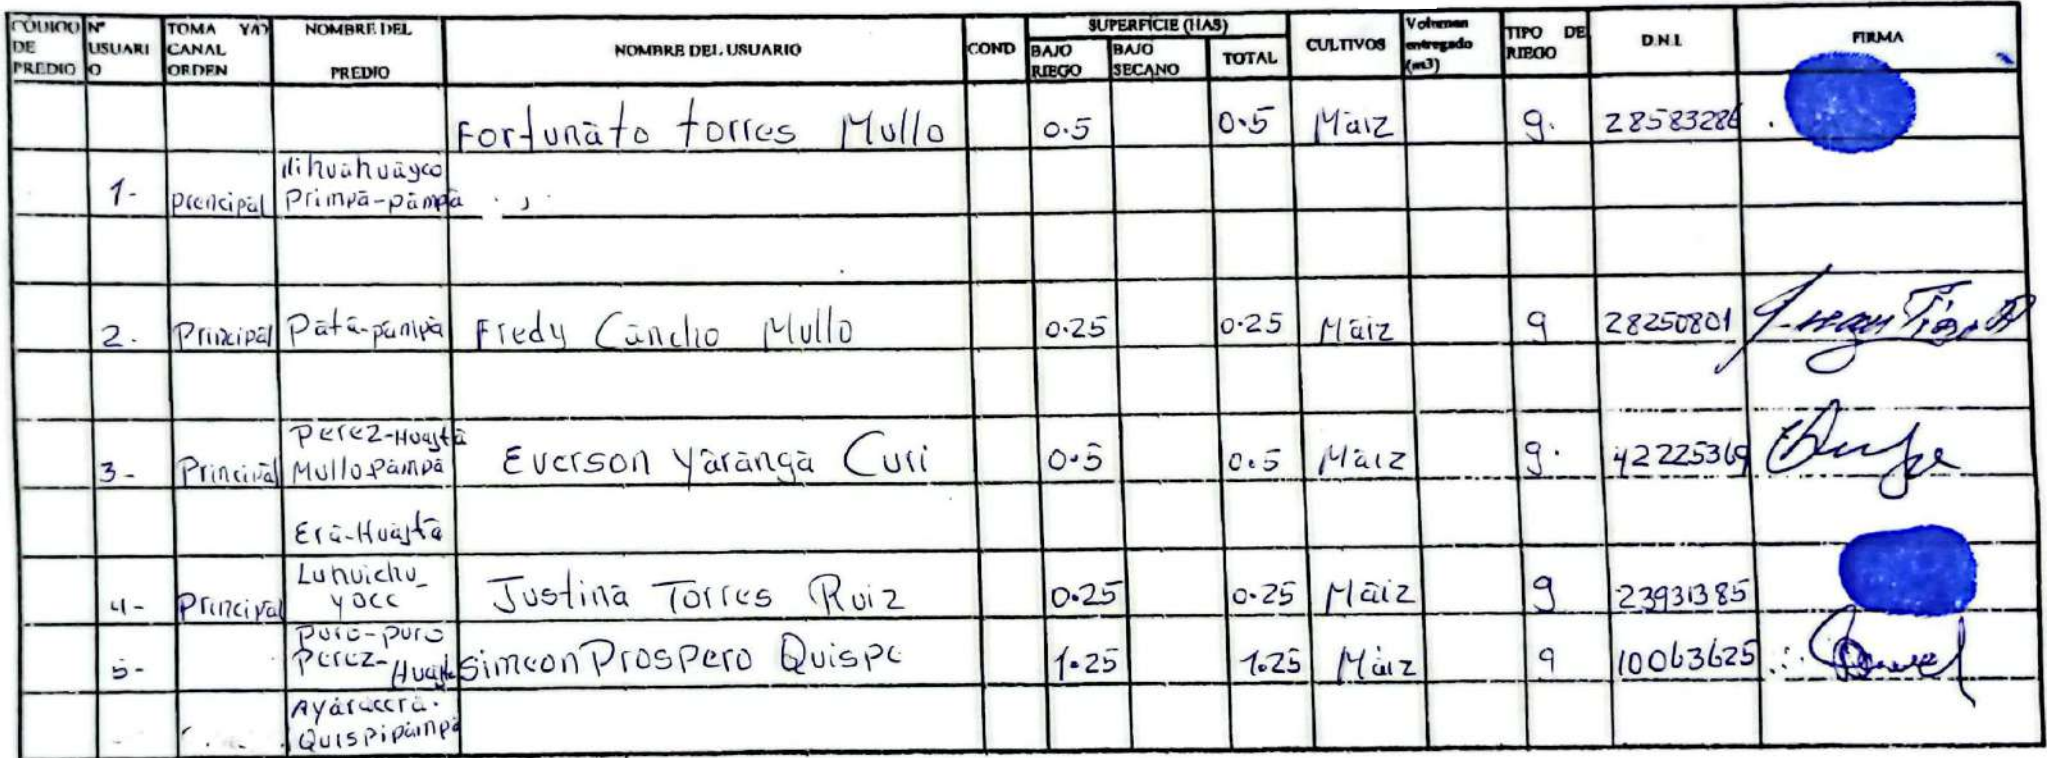 CODIGO DE PREDIO N° USUARIO TOMA Y/O CANAL ORDEN NOMBRE DEL PREDIO NOMBRE DEL USUARIO COND SUPERFICIE (HAS) BAJO RIEGO BAJO SECANO TOTAL CULTIVOS Volumen entregado (m3) TIPO DE RIEGO D.N.I. FIRMA
Fortunato torres Mullo 0.5 0.5 Maiz g. 28583286
1- prencipal Primpa-pampa
2. Principal Pata-pampa Fredy Cancho Mullo 0.25 0.25 Maiz g 28250801
Perez-Huajta
3- Principal Mullo Pampa Everson Yaranga Curi 0.5 0.5 Maiz g. 42225369
Era-Huajta
4- Principal Luhuichu-yocc Justina Torres Ruiz 0.25 0.25 Maiz g 23931385
puro-puro
5- Perez-Huajta Simeon Prospero Quispe 1.25 1.25 Maiz g 10063625
Ayaraccra.
Quispipampa